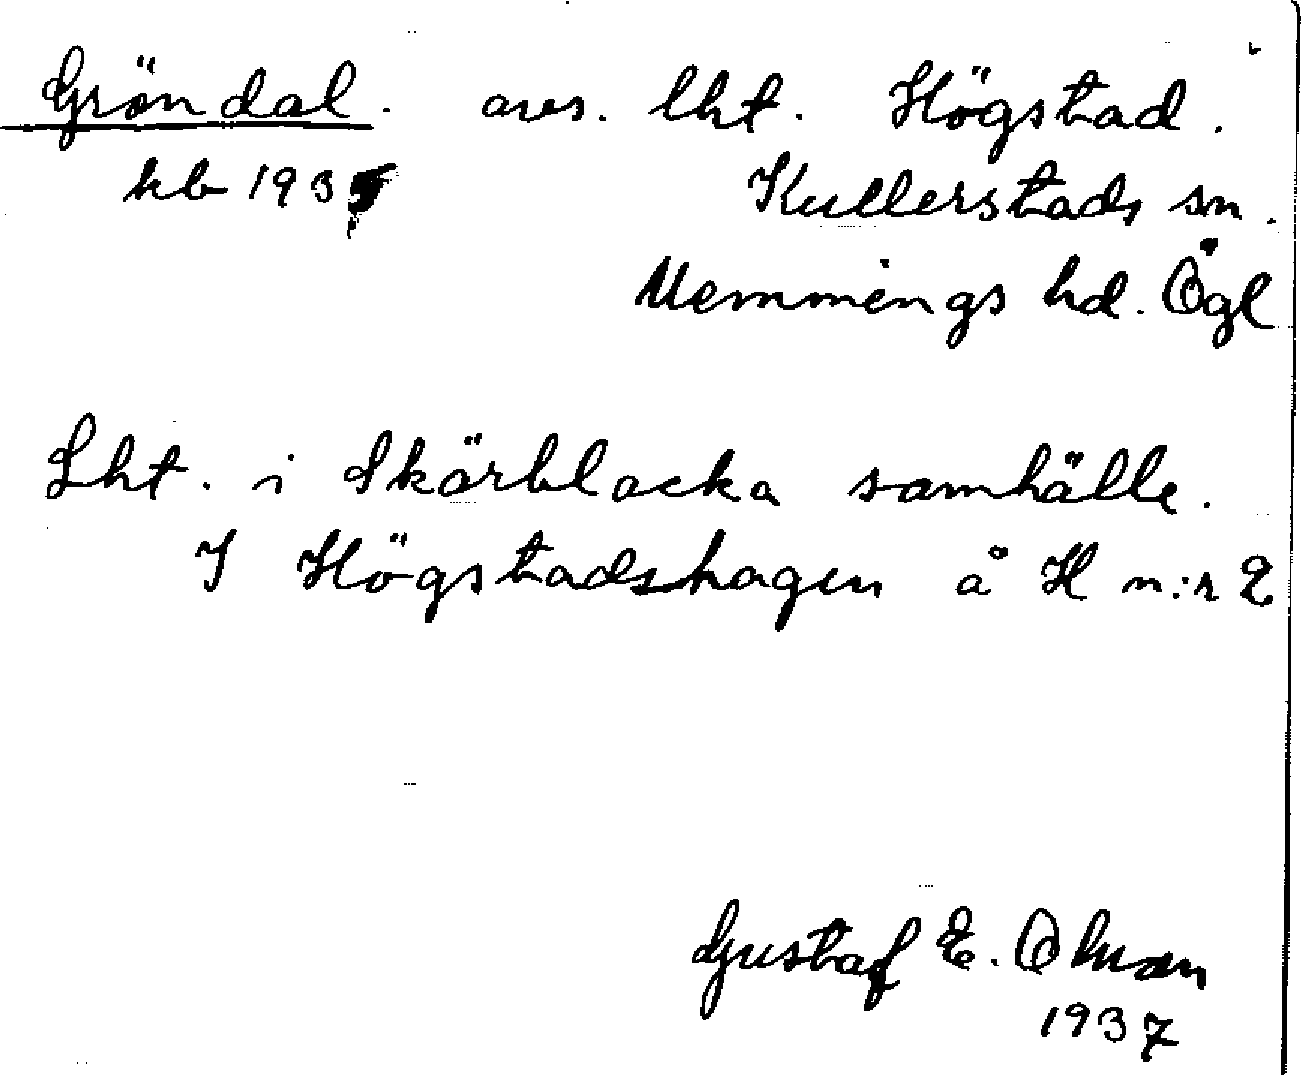 Gröndal. avs. lht. Högstad.
kb 193
Kullerstads sn.
Memmings hd. Ögl
Lht. i Skärblacka samhälle.
I Högstadshagen å H n:r 2
Gustaf E. Olman
1937